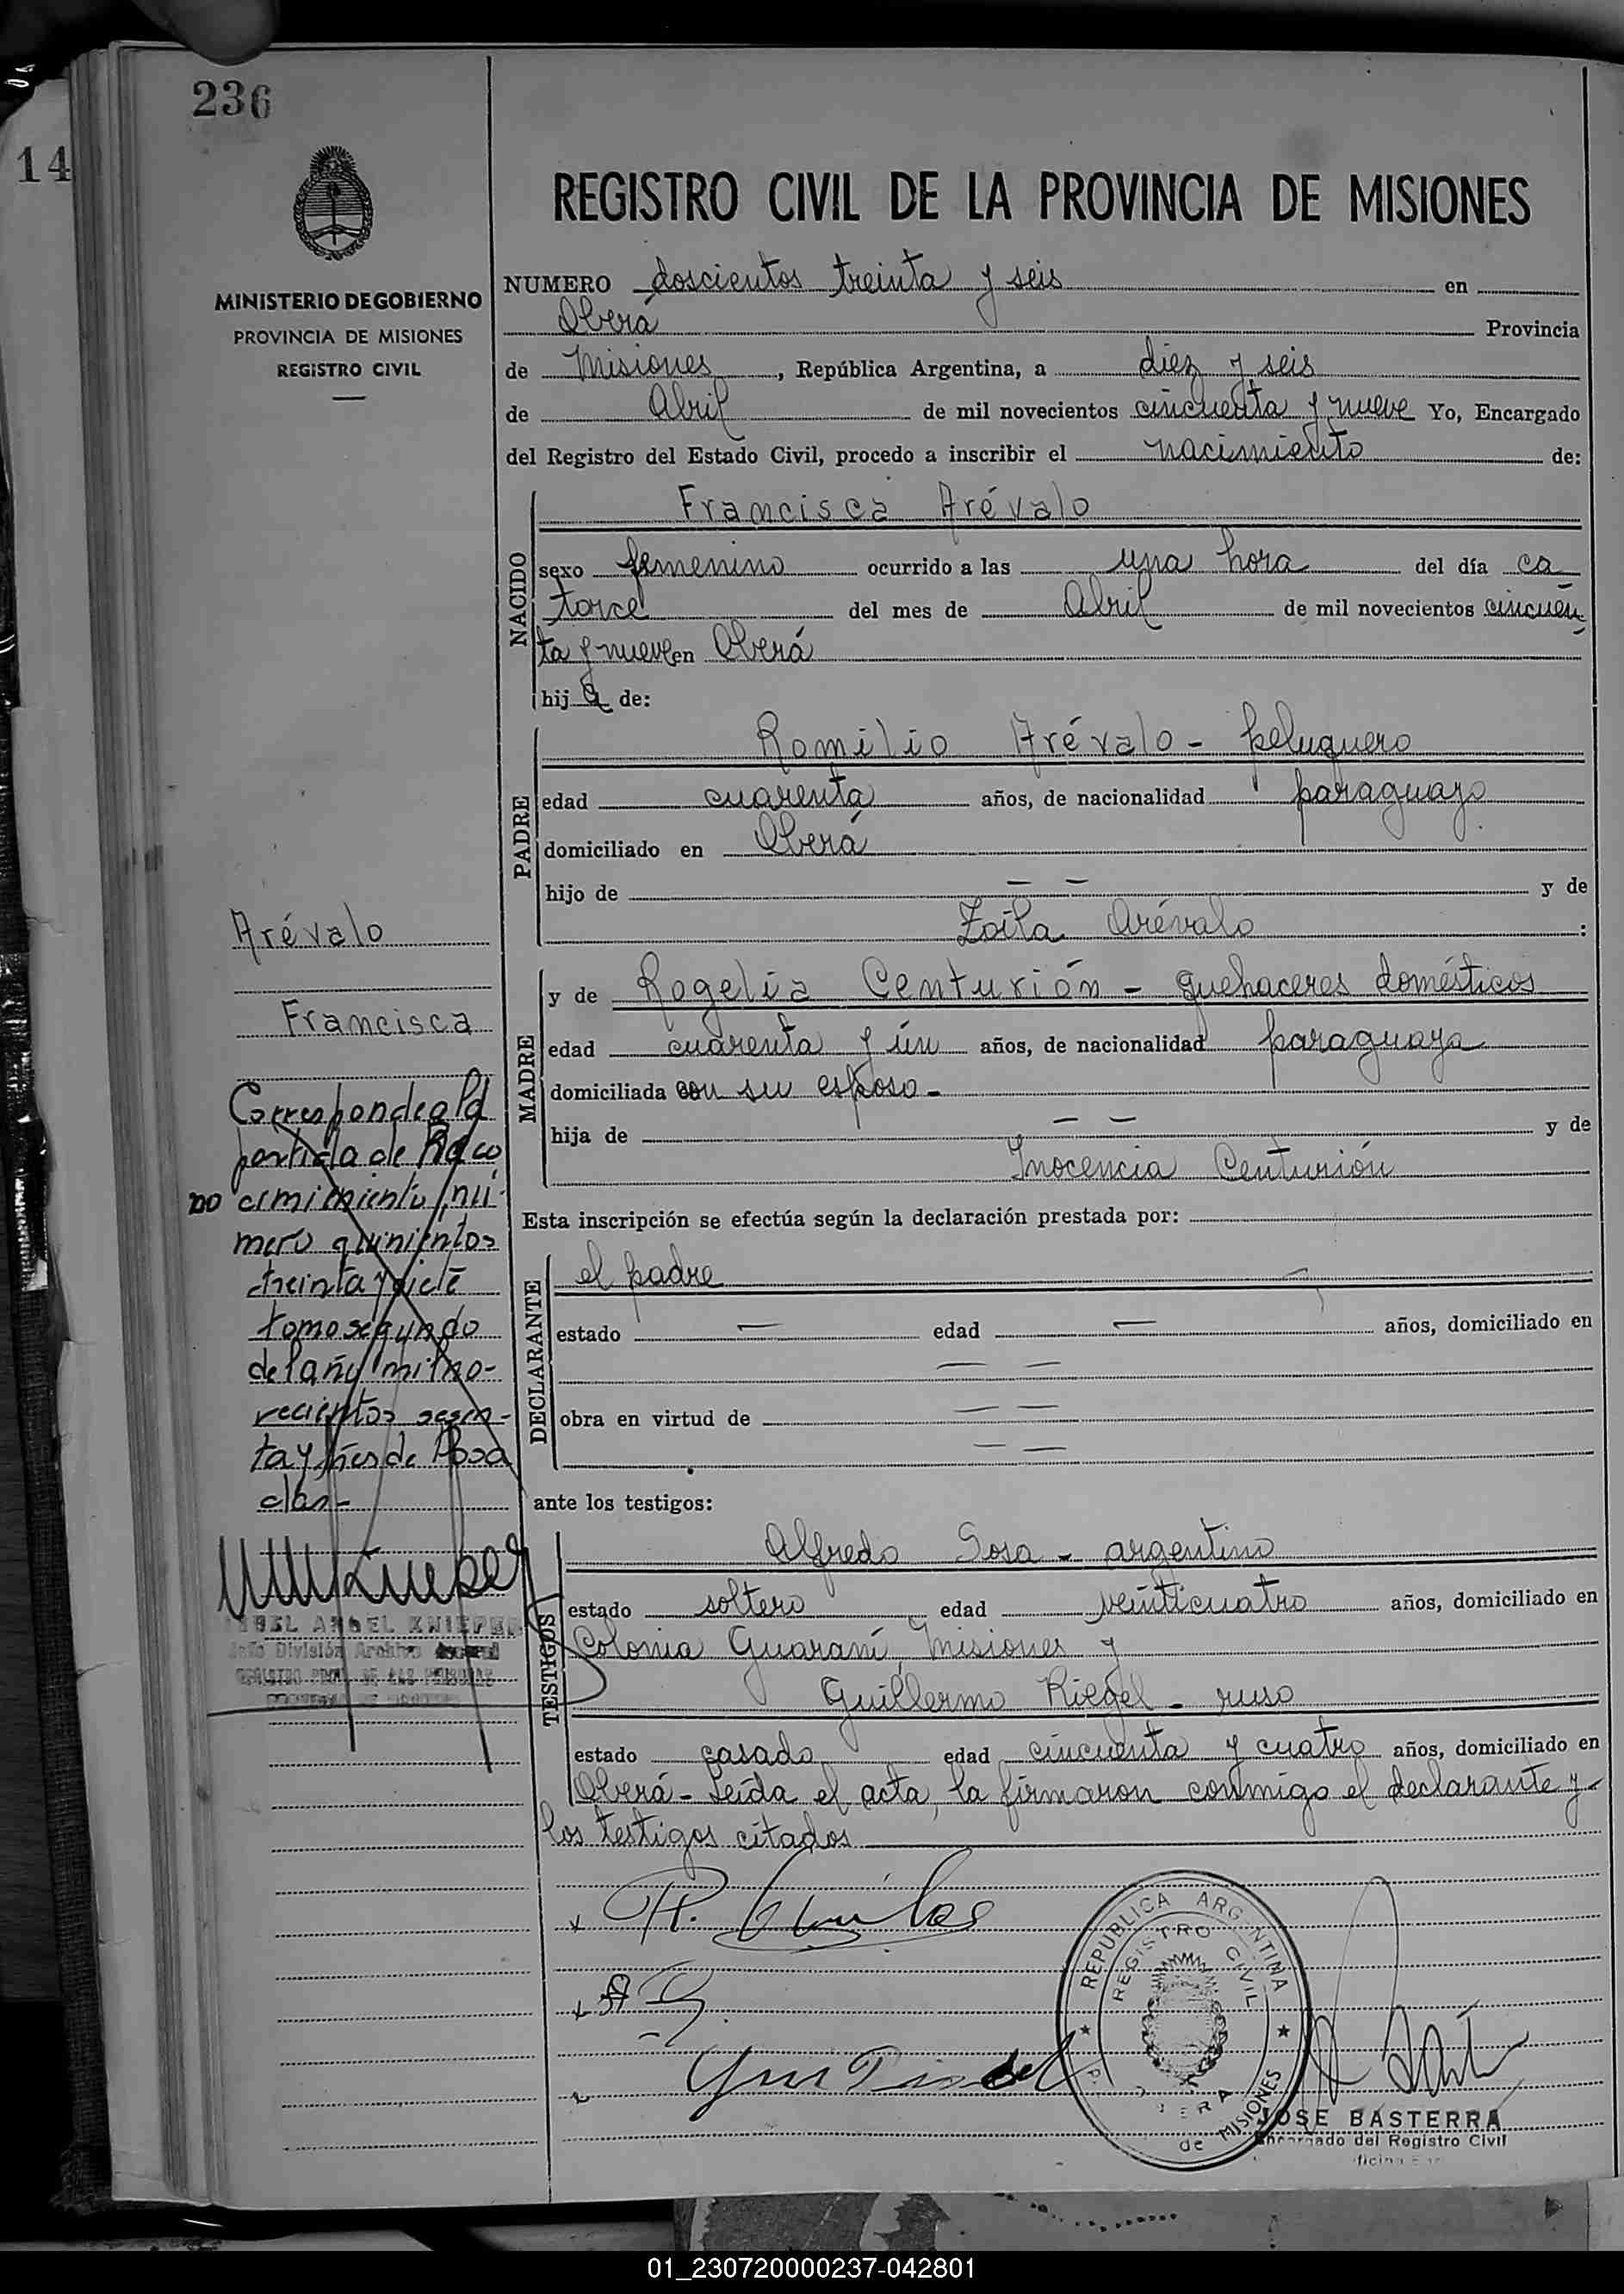 236
14
REGISTRO CIVIL DE LA PROVINCIA DE MISIONES
MINISTERIO DE GOBIERNO
PROVINCIA DE MISIONES
REGISTRO CIVIL
NUMERO doscientos treinta y seis en
Oberá Provincia
de Misiones, República Argentina, a diez y seis
de Abril de mil novecientos cincuenta y nueve Yo, Encargado
del Registro del Estado Civil, procedo a inscribir el nacimiento de:
NACIDO
Francisca Arévalo
sexo femenino ocurrido a las una hora del día ca
torce del mes de Abril de mil novecientos cincuen
ta y nueve en Oberá
hija de:
PADRE
Romilio Arévalo - peluquero
edad cuarenta años, de nacionalidad paraguayo
domiciliado en Oberá
hijo de — — y de
Zoila Arévalo :
MADRE
y de Rogelia Centurión - quehaceres domésticos
edad cuarenta y un años, de nacionalidad paraguaya
domiciliada con su esposo -
hija de — — y de
Inocencia Centurión
Esta inscripción se efectúa según la declaración prestada por:
DECLARANTE
el padre
estado — edad — años, domiciliado en
— —
obra en virtud de — —
— —
ante los testigos:
TESTIGOS
Alfredo Sosa - argentino
estado soltero edad veinticuatro años, domiciliado en
Colonia Guaraní, Misiones y
Guillermo Riegel - ruso
estado casado edad cincuenta y cuatro años, domiciliado en
Oberá - Leída el acta, la firmaron conmigo el declarante y
los testigos citados
Arévalo
Francisca
Corresponde a la
partida de Reco
no cimimiento nú-
mero quinientos
treinta y siete
tomo segundo
del año mil no-
vecientos sesen-
ta y tres de Posa
das-
ANGEL KNIEPER
Jefe División Archivo General
REPUBLICA ARGENTINA
REGISTRO CIVIL
OBERA
de MISIONES
JOSE BASTERRA
Encargado del Registro Civil
01_230720000237-042801